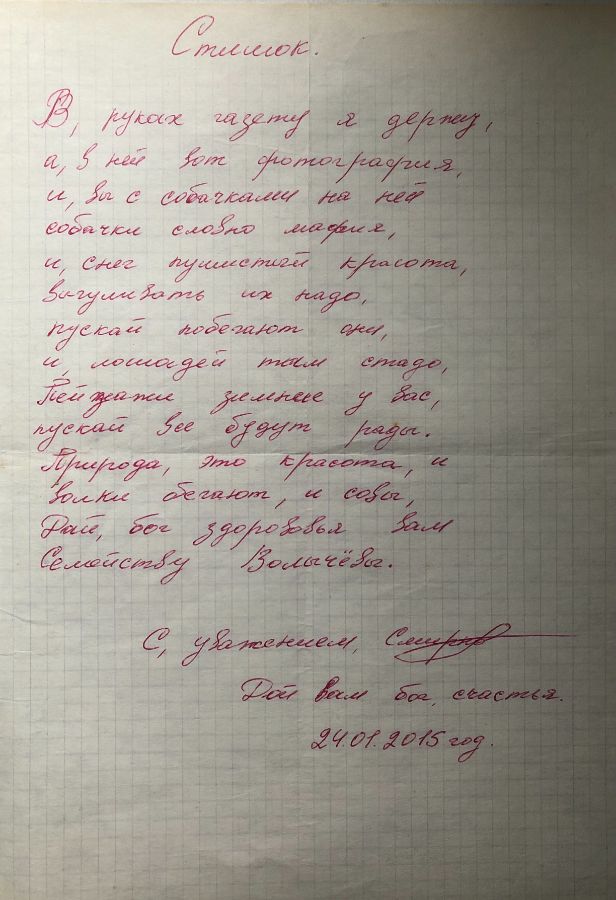 Стишок.
В, руках газету я держу,
а, в ней вот фотография,
и, вы с собачками на ней
собачки словно мафия,
и, снег пушистый красота,
выгуливать их надо,
пускай побегают они,
и, лошадей тым стадо,
Пейзажи зимние у вас,
пускай все будут рады.
Природа, это красота, и
волки бегают, и совы,
Дай, бог здоровья вам
Семейству Волычёвы.
С, уважением, Смирнов
Дай вам бог, счастья.
24.01.2015 год.